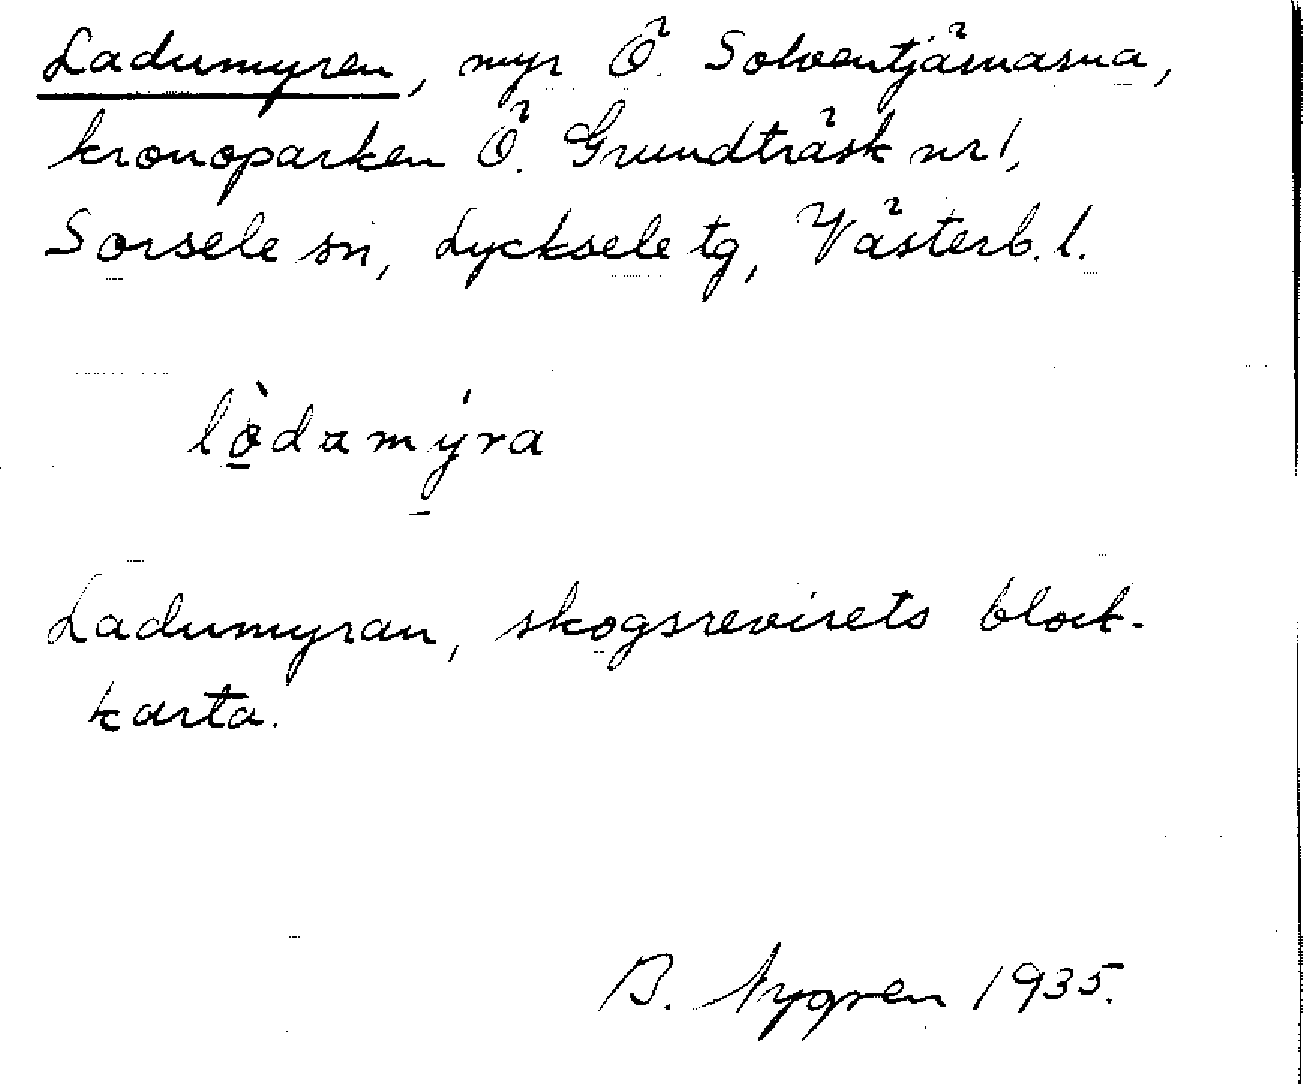 Ladumyren, myr Ö. Solventjärnarna,
kronoparken Ö. Grundträsk nr 1,
Sorsele sn, Lycksele tg, Västerb. l.
lò̱damýra
Ladumyran, skogsrevirets block-
karta.
B. Nygren 1935.